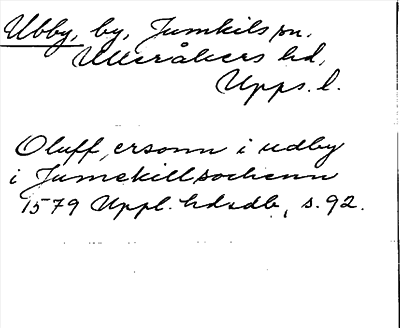 Ubby, by, Jumkils sn,
Ulleråkers hd,
Upps. l.
Oluff, ersonn i udby
i Jumekillsochenn
1579 Uppl. hdsdb, s. 92.